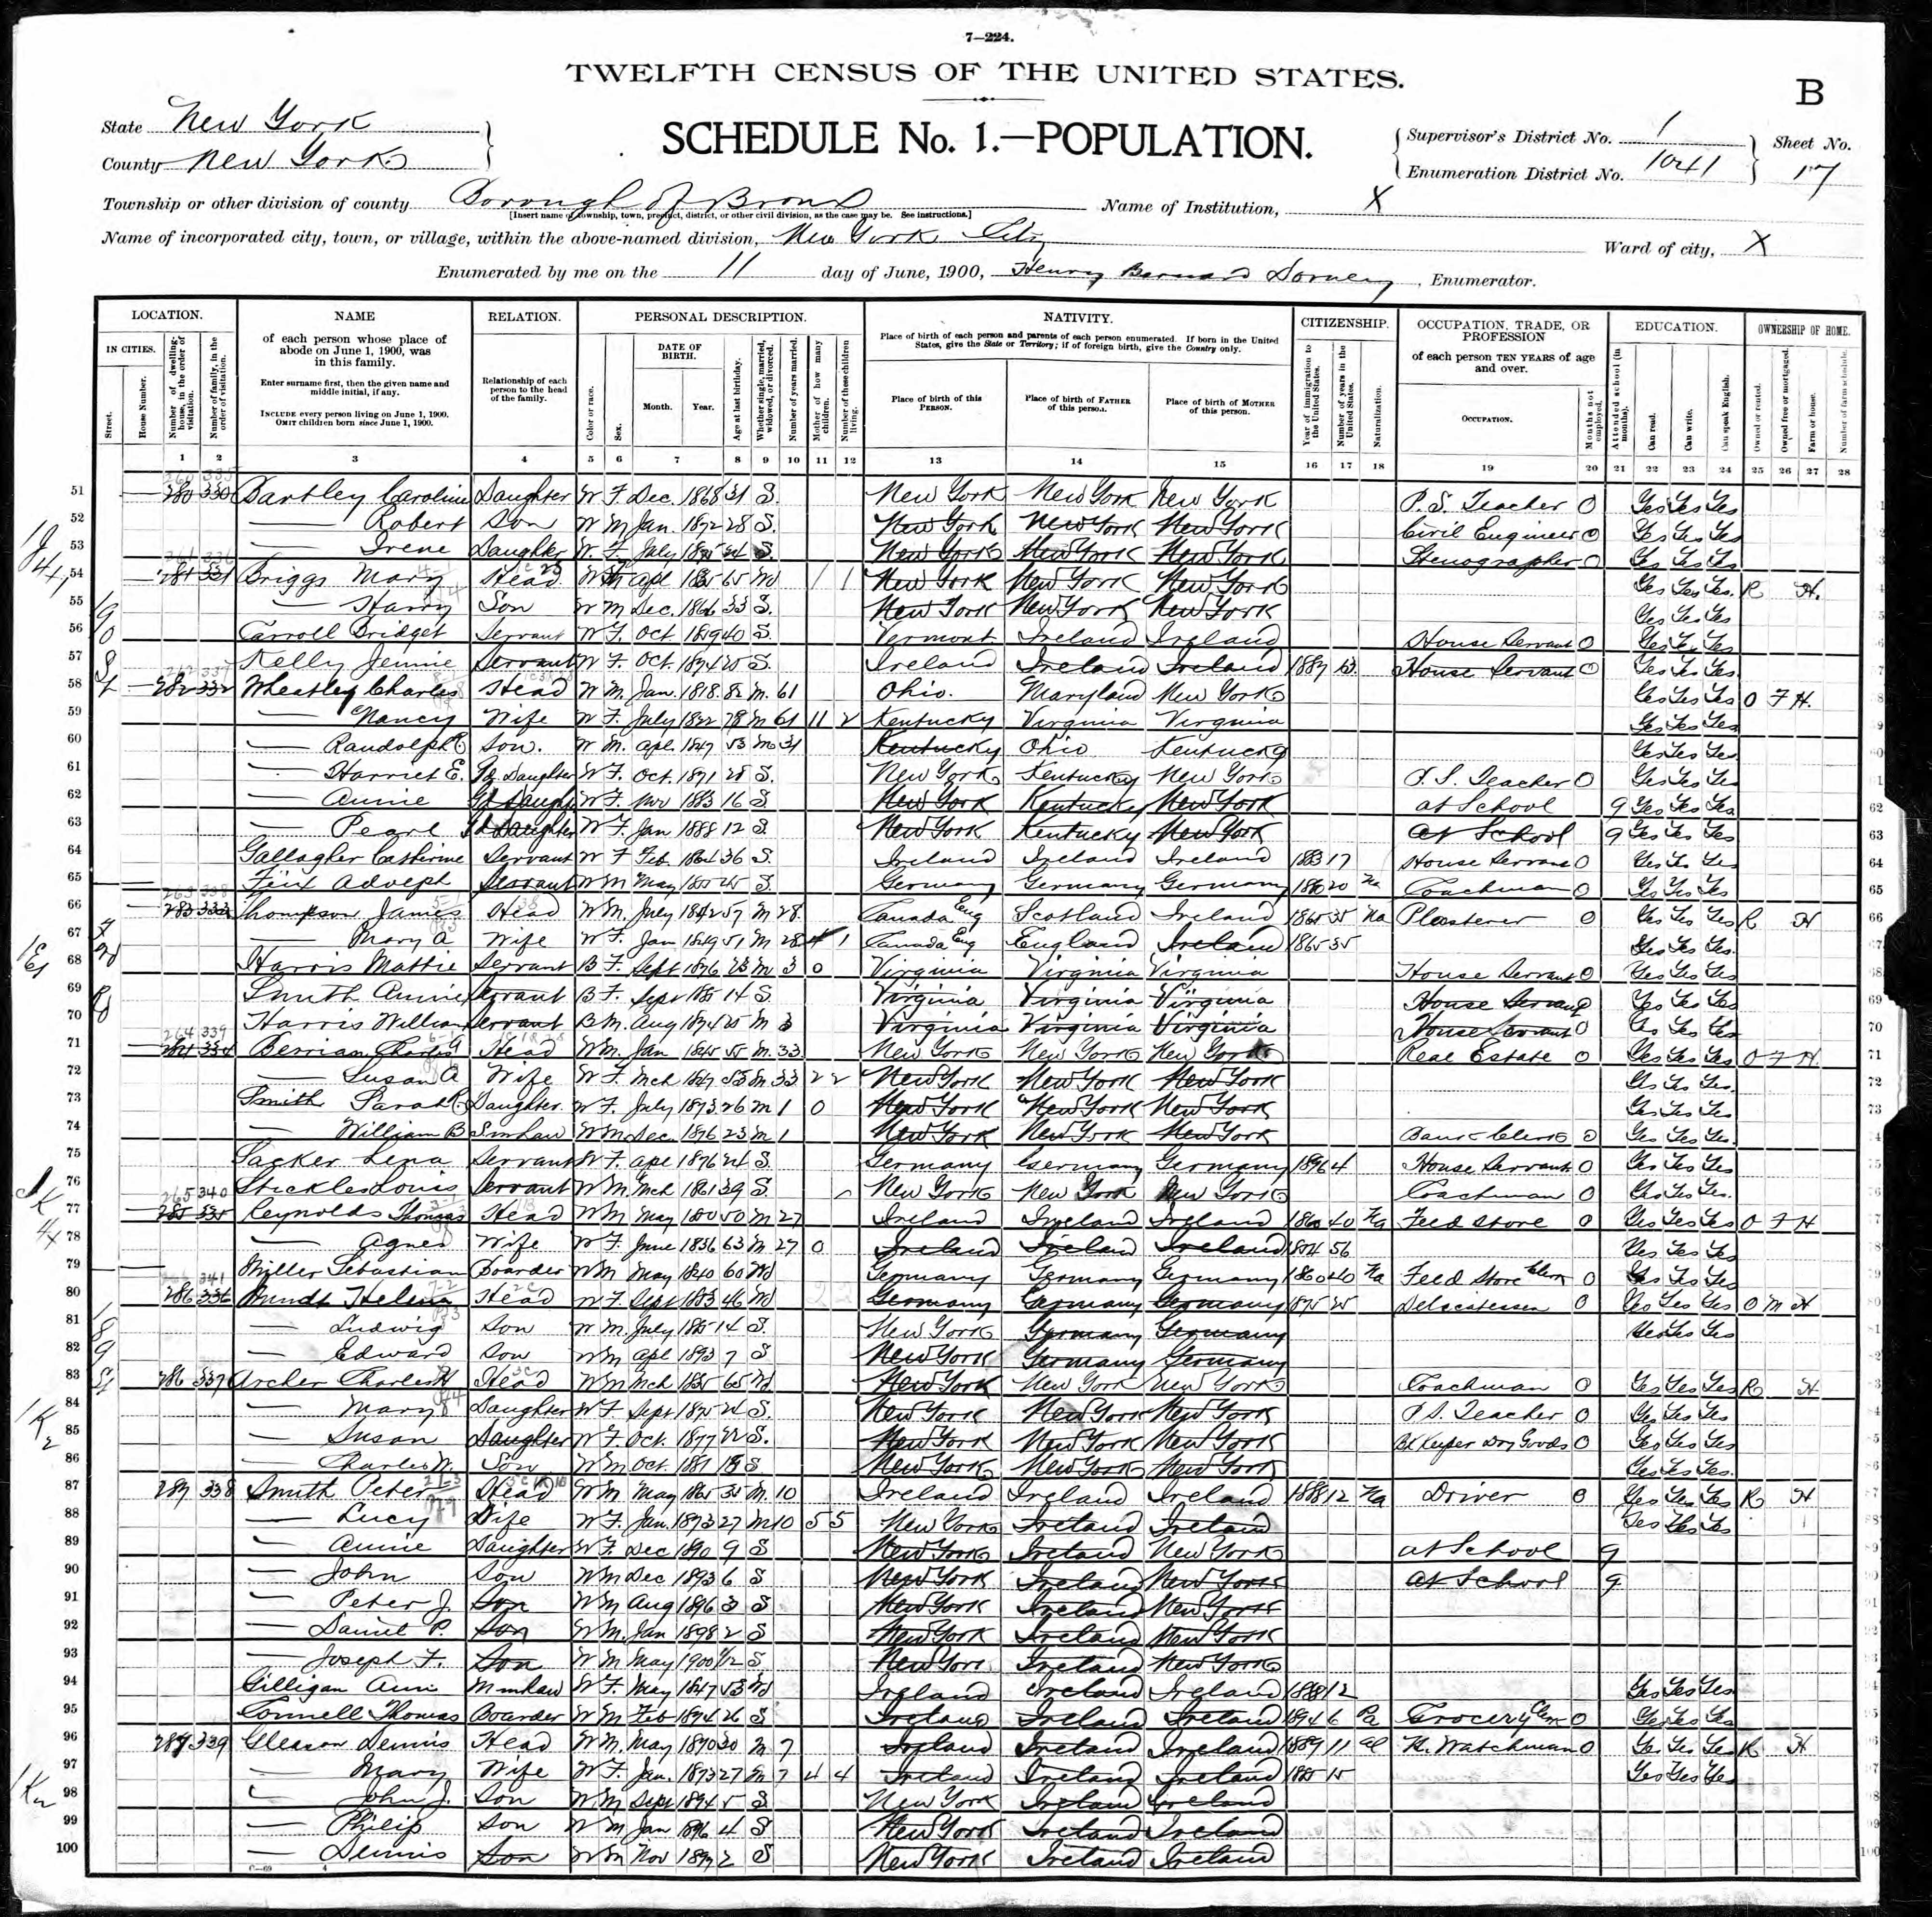 7—224.
TWELFTH CENSUS OF THE UNITED STATES.
B
State New York
County New York
SCHEDULE No. 1.—POPULATION.
Supervisor's District No. 1
Enumeration District No. 1041
Sheet No. 17
Township or other division of county Borough of Bronx
[Insert name of township, town, precinct, district, or other civil division, as the case may be. See instructions.]
Name of Institution, X
Name of incorporated city, town, or village, within the above-named division, New York City
Ward of city, X
Enumerated by me on the 11 day of June, 1900, Henry Barnard , Enumerator.
LOCATION. NAME RELATION. PERSONAL DESCRIPTION. NATIVITY. CITIZENSHIP. OCCUPATION, TRADE, OR PROFESSION EDUCATION. OWNERSHIP OF HOME.
IN CITIES.
Street.
House Number.
Number of dwelling-house, in the order of visitation.
Number of family, in the order of visitation.
of each person whose place of abode on June 1, 1900, was in this family.
Enter surname first, then the given name and middle initial, if any.
INCLUDE every person living on June 1, 1900. OMIT children born since June 1, 1900.
Relationship of each person to the head of the family.
Color or race.
Sex.
DATE OF BIRTH.
Month. Year.
Age at last birthday.
Whether single, married, widowed, or divorced.
Number of years married.
Mother of how many children.
Number of these children living.
Place of birth of each person and parents of each person enumerated. If born in the United States, give the State or Territory; if of foreign birth, give the Country only.
Place of birth of this PERSON.
Place of birth of FATHER of this person.
Place of birth of MOTHER of this person.
Year of immigration to the United States.
Number of years in the United States.
Naturalization.
of each person TEN YEARS of age and over.
OCCUPATION.
Months not employed.
Attended school (in months).
Can read.
Can write.
Can speak English.
Owned or rented.
Owned free or mortgaged.
Farm or house.
Number of farm schedule.
1 2 3 4 5 6 7 8 9 10 11 12 13 14 15 16 17 18 19 20 21 22 23 24 25 26 27 28
51 280 330 Bartley Caroline Daughter W F Dec 1868 31 S. New York New York New York P.S. Teacher 0 Yes Yes Yes
52 — Robert Son W M Jan 1872 28 S. New York New York New York Civil Engineer 0 Yes Yes Yes
53 — Irene Daughter W F July 1875 24 S New York New York New York Stenographer 0 Yes Yes Yes
54 281 331 Briggs Mary Head W Apl 1835 65 Wd 1 1 New York New York New York Yes Yes Yes R H.
55 — Harry Son W M Dec. 1866 33 S. New York New York New York Yes Yes Yes
56 Carroll Bridget Servant W F. Oct 40 S. Vermont Ireland Ireland House Servant 0 Yes Yes Yes
57 Kelly Jennie Servant W F. Oct. 1874 25 S. Ireland Ireland Ireland 1887 13 House Servant 0 Yes Yes Yes
58 282 332 Wheatley Charles Head W M. Jan. 1818 82 M. 61 Ohio. Maryland New York Yes Yes Yes O F H.
59 — Nancy Wife W F. July 1822 78 M 61 11 2 Kentucky Virginia Virginia Yes Yes Yes
60 — Randolph Son. W M. Apl. 1847 53 M 31 Kentucky Ohio Kentucky Yes Yes Yes
61 — Harriet E. Gd Daughter W F. Oct. 1871 28 S. New York Kentucky New York P.S. Teacher 0 Yes Yes Yes
62 — Annie Gd Daught W F. Nov 1883 16 S New York Kentucky New York at School 9 Yes Yes Yes
63 — Pearl Gd Daughter W F. Jan 1888 12 S. New York Kentucky New York at School 9 Yes Yes Yes
64 Gallagher Catherine Servant W F Feb. 1864 36 S. Ireland Ireland Ireland 1883 17 House Servant 0 Yes Yes Yes
65 Adolph Servant W M May 1855 45 S. Germany Germany Germany 1880 20 Na Coachman 0 Yes Yes Yes
66 283 333 Thompson James Head W M. July 1842 57 M 28 Canada Eng Scotland Ireland 1865 35 Na Plasterer 0 Yes Yes Yes R H
67 — Mary A Wife W F. Jan 1849 51 M 28 4 1 Canada Eng England Ireland 1865 35 Yes Yes Yes
68 Harris Mattie Servant B F. Sept 1876 23 M 3 0 Virginia Virginia Virginia House Servant 0 Yes Yes Yes
69 Smith Annie Servant B F. Sept 1885 14 S. Virginia Virginia Virginia House Servant 0 Yes Yes Yes
70 Harris William Servant B M. Aug 1874 25 M 3 Virginia Virginia Virginia House Servant 0 Yes Yes Yes
71 284 334 Berrian Charles A Head W M. Jan 1845 55 M. 33 New York New York New York Real Estate 0 Yes Yes Yes O F H.
72 — Susan A Wife W F. Mch 1847 53 M 33 2 2 New York New York New York Yes Yes Yes
73 Smith Sarah R. Daughter. W F. July 1873 26 M 1 0 New York New York New York Yes Yes Yes
74 — William B Sinlaw W M Dec 1876 23 M 1 New York New York New York Bank Clerk 0 Yes Yes Yes
75 Sacker Lena Servant W F. Apl 1876 24 S. Germany Germany Germany 1896 4 House Servant 0 Yes Yes Yes
76 Stickles Louis Servant W M. Mch 1861 39 S. New York New York New York Coachman 0 Yes Yes Yes.
77 285 335 Reynolds Thomas Head W M May 1850 50 M 27 Ireland Ireland Ireland 1860 40 Na Feed Store 0 Yes Yes Yes O F H
78 — Agnes Wife W F. June 1836 63 M 27 0 Ireland Ireland Ireland 1844 56 Yes Yes Yes
79 Miller Sebastian Boarder W M May 1840 60 Wd Germany Germany Germany 1860 40 Na Feed Store Clerk 0 Yes Yes Yes
80 286 336 Helena Head W F. Sept 1853 46 Wd Germany Germany Germany 1875 25 Delicatessen 0 Yes Yes Yes O M H
81 — Ludwig Son W M. July 1885 14 S. New York Germany Germany Yes Yes Yes
82 — Edward Son W M Apl 1893 7 S New York Germany Germany
83 286 337 Archer Charles H Head W M Mch 1835 65 Wd New York New York New York Coachman 0 Yes Yes Yes R H
84 — Mary Daughter W F Sept 1875 24 S. New York New York New York P.S. Teacher 0 Yes Yes Yes
85 — Susan Daughter W F. Oct. 1877 22 S. New York New York New York Bk Keeper Dry Goods 0 Yes Yes Yes
86 — Charles W. Son W M Oct. 1881 18 S New York New York New York Yes Yes Yes.
87 287 338 Smith Peter Head W M May 1865 35 M. 10 Ireland Ireland Ireland 1888 12 Na Driver 0 Yes Yes Yes R H
88 — Lucy Wife W F. Jan. 1873 27 M 10 5 5 New York Ireland Ireland Yes Yes Yes
89 — Annie Daughter W F. Dec 1890 9 S New York Ireland New York at School 9
90 — John Son W M Dec 1893 6 S New York Ireland New York at School 9
91 — Peter J. Son W M Aug 1896 3 S New York Ireland New York
92 — Daniel P. Son W M. Jan 1898 2 S New York Ireland New York
93 — Joseph F. Son W M May 1900 1/12 S New York Ireland New York
94 Gilligan Ann Minlaw W F. May 1847 53 Wd Ireland Ireland Ireland 1888 12 Yes Yes Yes
95 Connell Thomas Boarder W M Feb 1874 26 S Ireland Ireland Ireland 1894 6 Pa Grocery Clerk 0 Yes Yes Yes
96 287 339 Gleason Dennis Head W M. May 1870 30 M 7 Ireland Ireland Ireland 1889 11 Al N. Watchman 0 Yes Yes Yes R H
97 — Mary Wife W F. Jan. 1873 27 M 7 4 4 Ireland Ireland Ireland 1885 15 Yes Yes Yes
98 — John J. Son W M Sept 1894 5 S New York Ireland Ireland
99 — Philip Son W M Jan 1896 4 S New York Ireland Ireland
100 — Dennis Son W M Nov 1897 2 S New York Ireland Ireland